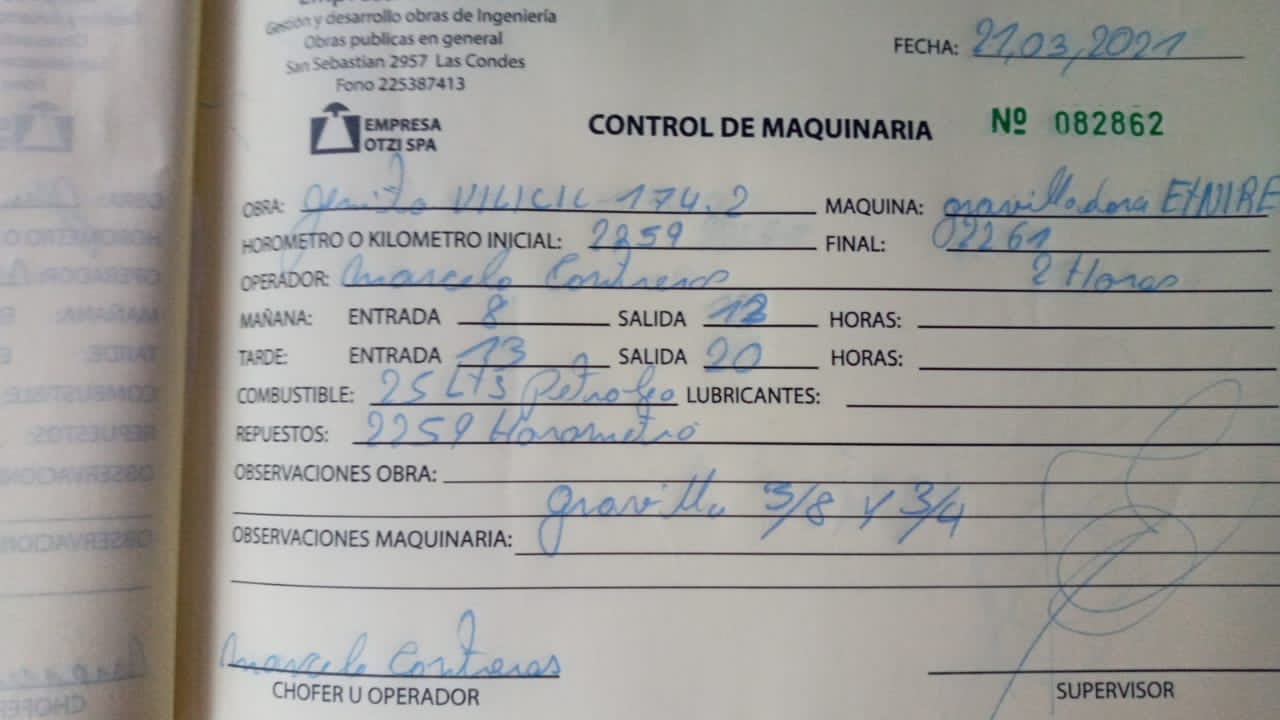 Gestión y desarrollo obras de Ingeniería
Obras publicas en general
San Sebastian 2957 Las Condes
Fono 225387413
FECHA: 21,03,2021
EMPRESA
OTZI SPA
CONTROL DE MAQUINARIA Nº 082862
OBRA: VILICIC 174.2 MAQUINA: gravilladora ETNIRE
HOROMETRO O KILOMETRO INICIAL: 2259 FINAL: 02261
OPERADOR: Marcelo Contreras 2 Horas
MAÑANA: ENTRADA 8 SALIDA HORAS:
TARDE: ENTRADA 13 SALIDA 20 HORAS:
COMBUSTIBLE: 25 LTS Petroleo LUBRICANTES:
REPUESTOS: 2259 Horometro
OBSERVACIONES OBRA:
gravilla 3/8 Y 3/4
OBSERVACIONES MAQUINARIA:
Marcelo Contreras
CHOFER U OPERADOR SUPERVISOR